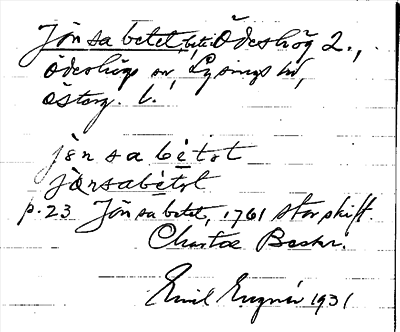 Jönsabetet, bete, Ödeshög 2.,
Ödeshögs sn, Lysings hd,
Österg. l.
jönsabètət
jönsabètət
p. 23 Jönsabetet, 1761 storskift.
Chartæ Beskr.
Emil 1931